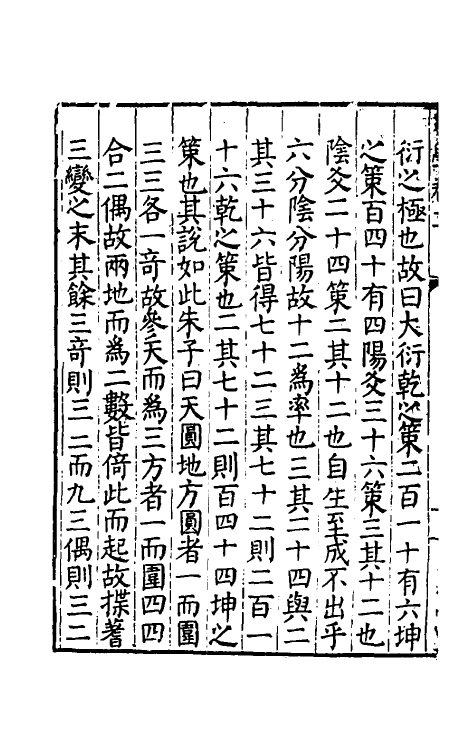 衍之極也故曰大衍乾之策二百一十有六坤
之策百四十有四陽爻三十六策三其十二也
陰爻二十四策二其十二也自生至成不出乎
六分陰分陽故十二爲率也三其二十四與二
其三十六皆得七十二三其七十二則二百一
十六乾之策也二其七十二則百四十四坤之
策也其說如此朱子曰天圓地方圓者一而圍
三三各一竒故參天而爲三方者一而圍四四
合二偶故兩地而爲二數皆倚此而起故揲蓍
三變之末其餘三竒則三三而九三偶則三二